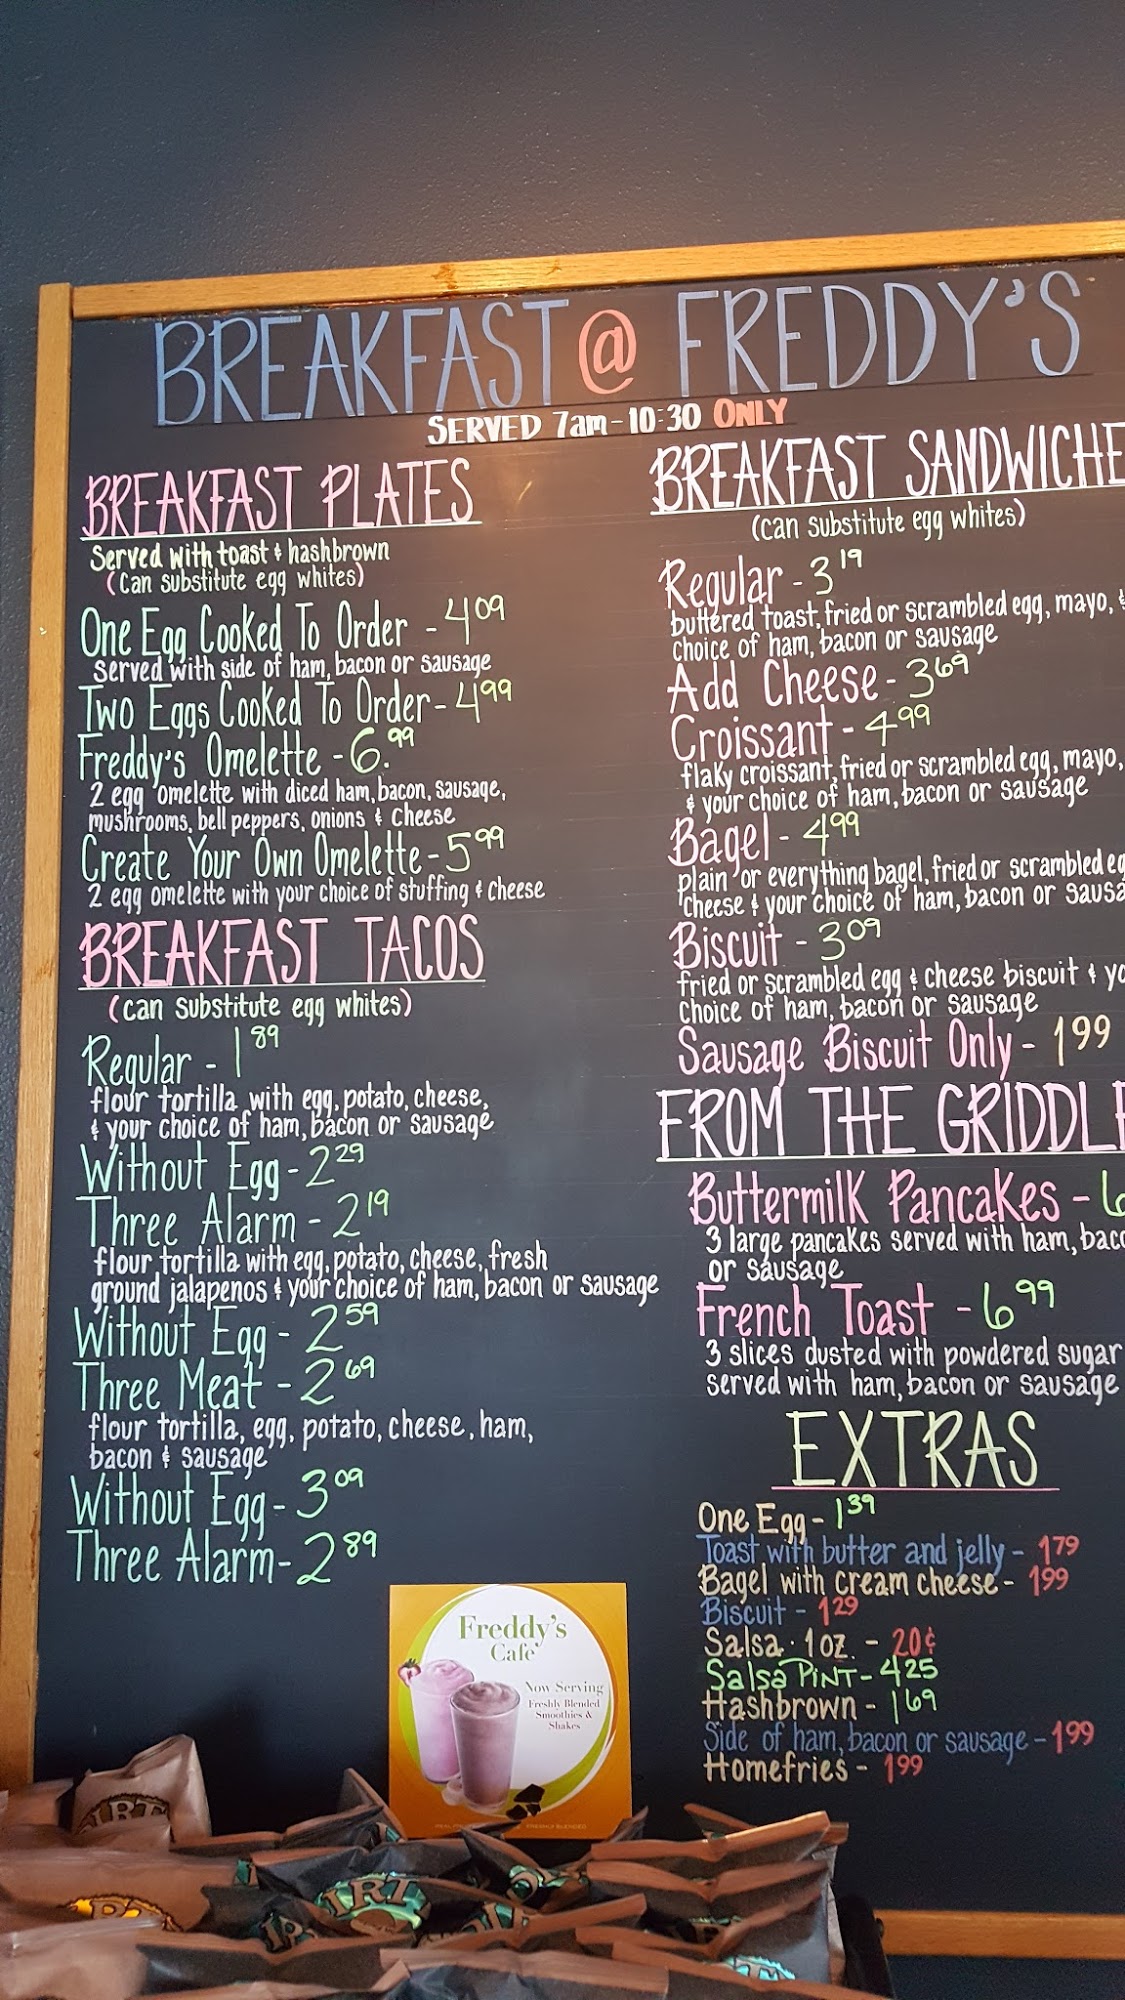 BREAKFAST @ FREDDY'S
SERVED 7am-10:30 ONLY
BREAKFAST PLATES
Served with toast & hashbrown
(can substitute egg whites)
One Egg Cooked To Order - 4.09
Served with side of ham, bacon or sausage
Two Eggs Cooked To Order - 4.99
Freddy's Omelette - 6.99
2 egg omelette with diced ham, bacon, sausage,
mushrooms, bell peppers, onions & cheese
Create Your Own Omelette - 5.99
2 egg omelette with your choice of stuffing & cheese
BREAKFAST TACOS
(can substitute egg whites)
Regular - 1.89
flour tortilla with egg, potato, cheese,
& your choice of ham, bacon or sausage
Without Egg - 2.29
Three Alarm - 2.19
flour tortilla with egg, potato, cheese, fresh
ground jalapenos & your choice of ham, bacon or sausage
Without Egg - 2.59
Three Meat - 2.69
flour tortilla, egg, potato, cheese, ham,
bacon & sausage
Without Egg - 3.09
Three Alarm - 2.89
BREAKFAST SANDWICHE
(can substitute egg whites)
Regular - 3.19
buttered toast, fried or scrambled egg, mayo, &
choice of ham, bacon or sausage
Add Cheese - 3.69
Croissant - 4.99
flaky croissant, fried or scrambled egg, mayo,
& your choice of ham, bacon or sausage
Bagel - 4.99
plain or everything bagel, fried or scrambled eg
cheese & your choice of ham, bacon or sausa
Biscuit - 3.09
fried or scrambled egg & cheese biscuit & yo
choice of ham, bacon or sausage
Sausage Biscuit Only - 1.99
FROM THE GRIDDLE
Buttermilk Pancakes - 6
3 large pancakes served with ham, baco
or sausage
French Toast - 6.99
3 slices dusted with powdered sugar
served with ham, bacon or sausage
EXTRAS
One Egg - 1.39
Toast with butter and jelly - 1.79
Bagel with cream cheese - 1.99
Biscuit - 1.29
Salsa · 1 oz. - 20¢
Salsa PINT - 4.25
Hashbrown - 1.69
Side of ham, bacon or sausage - 1.99
Homefries - 1.99
Freddy's
Cafe
Now Serving
Freshly Blended
Smoothies &
Shakes
FRESHLY BLENDED
DIRT